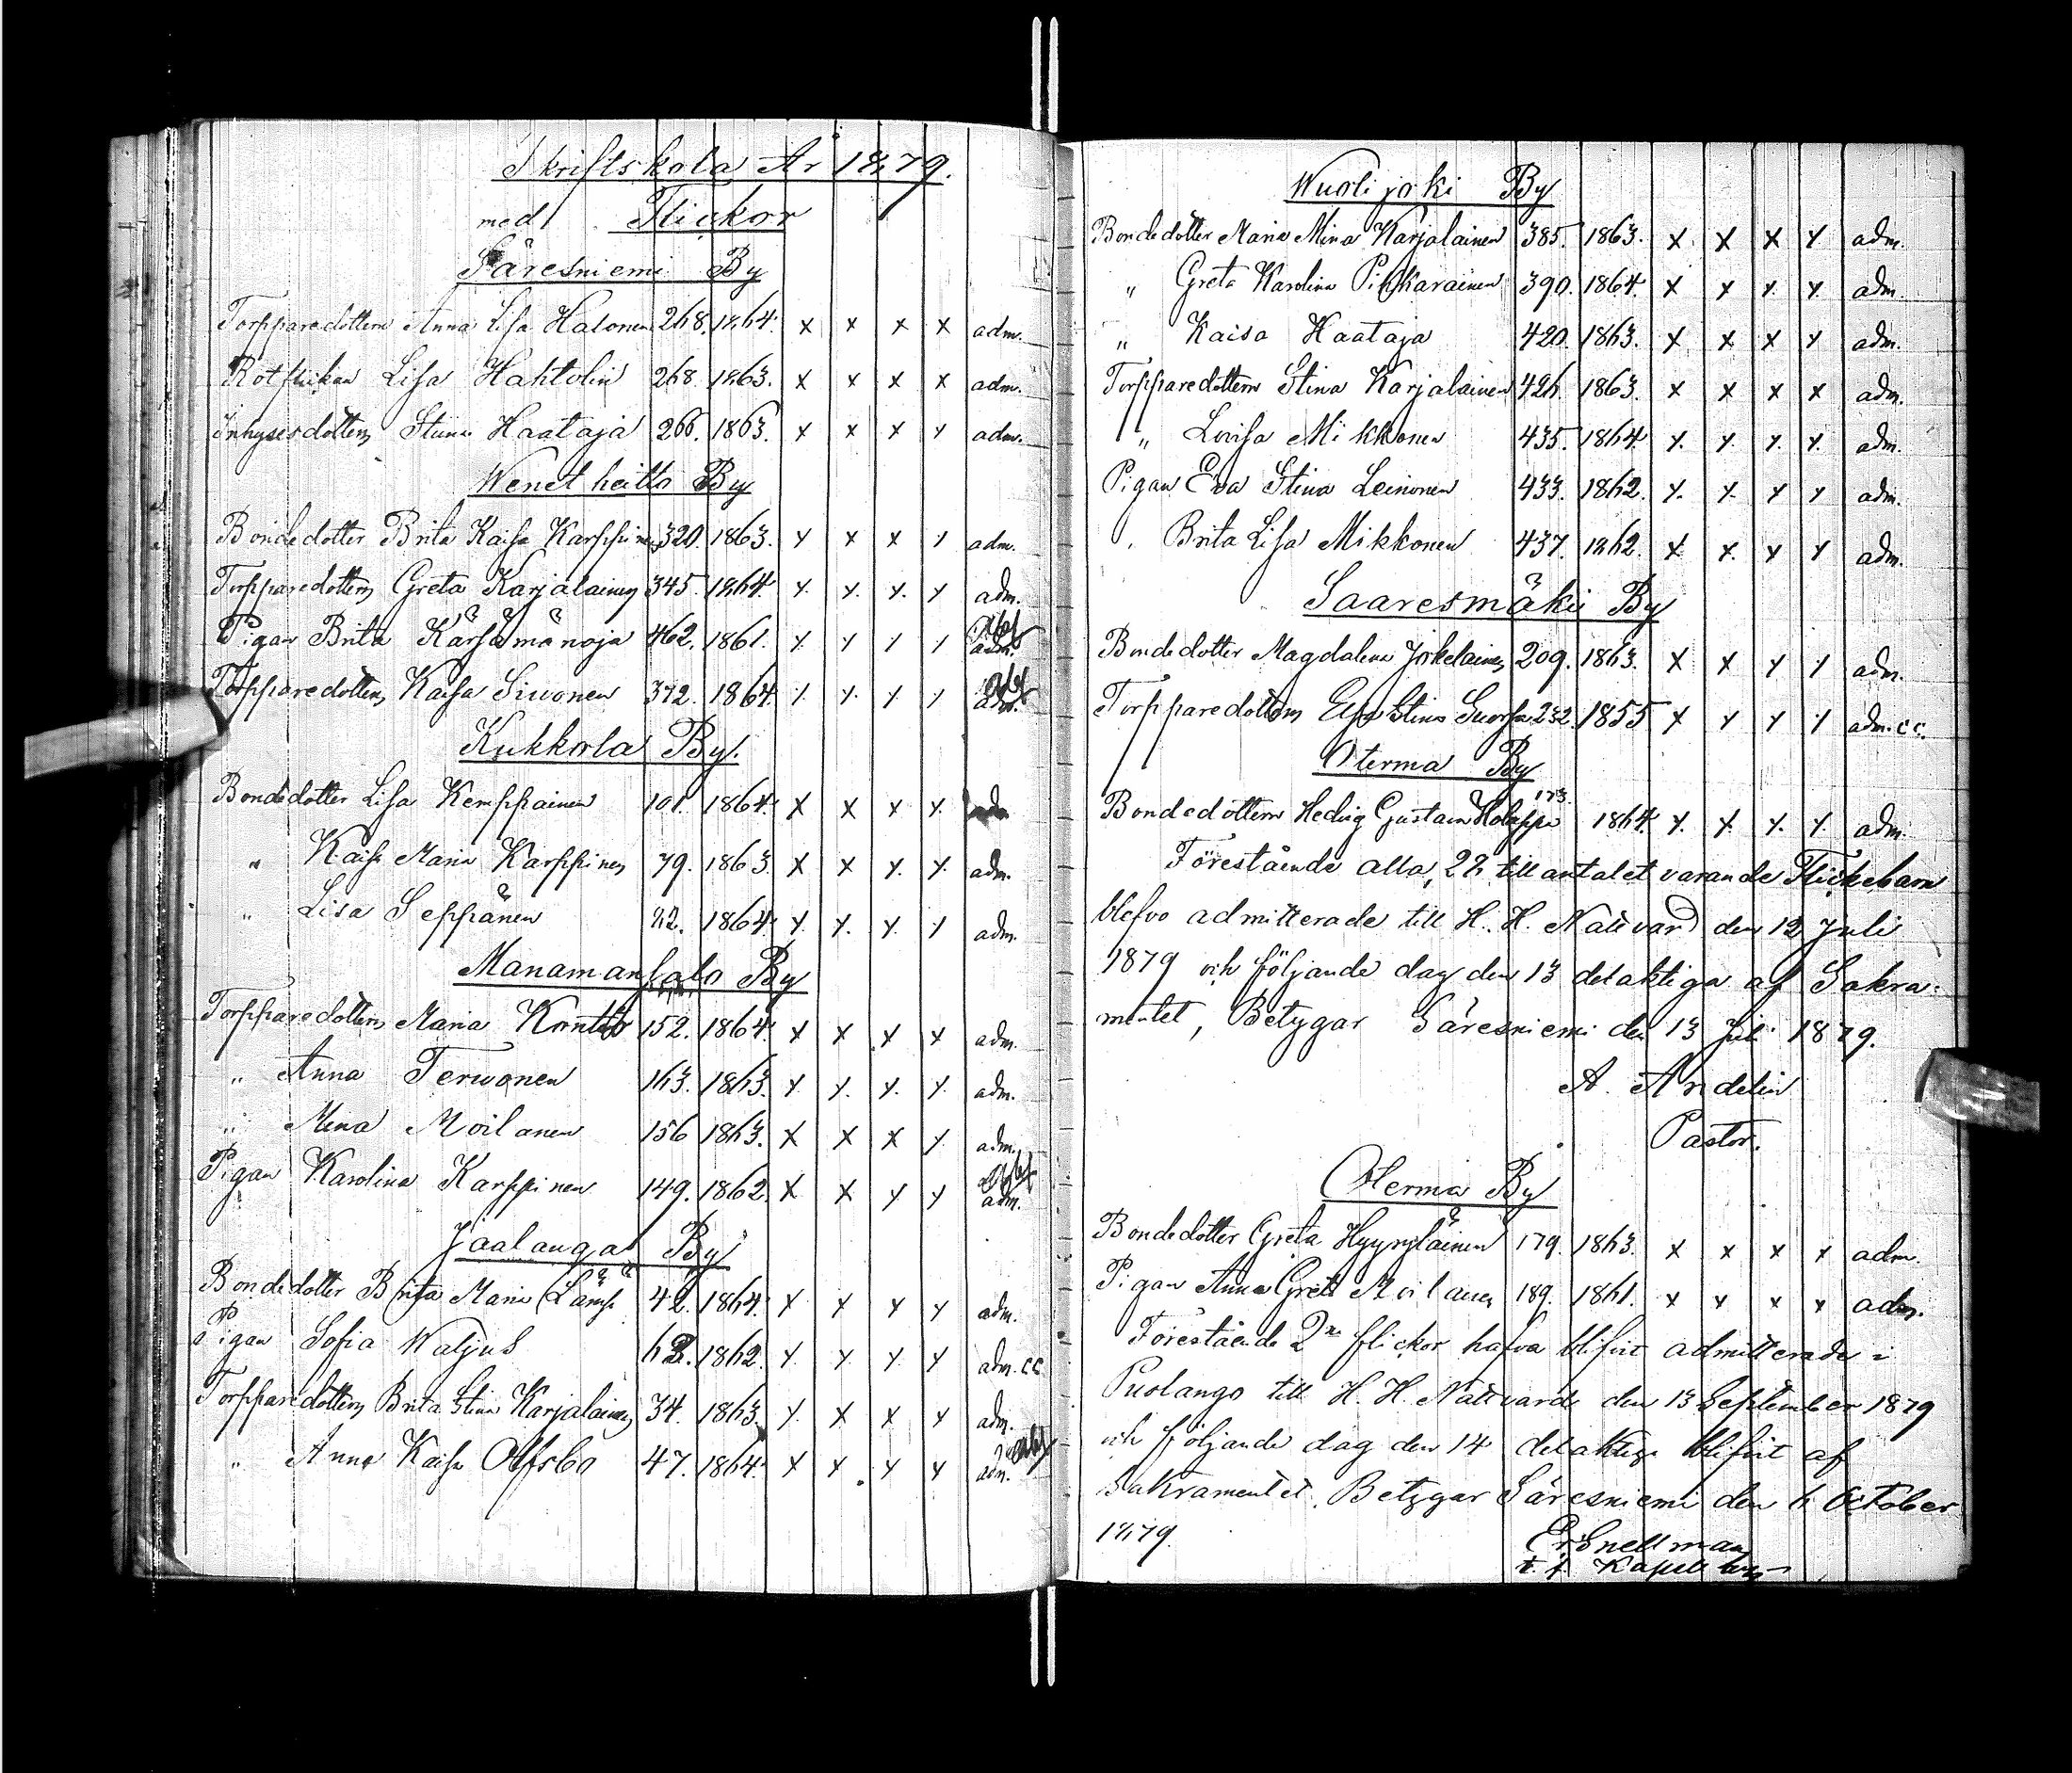 Skriftskola År 1879.
med Flickor
Säresniemi By
Torpparedottern Anna Lisa Halonen 268. 1864. x x x x adm.
Rotflickan Lisa Hahtolin 268. 1863. x x x x adm.
Inhysesdottern Stina Haataja 266. 1863. x x x x adm.
Wenetheitto By
Bondedotter Brita Kaisa Karppinen 320. 1863. x x x x adm.
Torpparedottern Greta Karjalainen 345. 1864. x x x x adm.
Pigan Brita Kärsämänoja 462. 1861. x x x x adm.
Torpparedottern Kaisa Siwonen 372. 1864. x x x x adm.
Kukkola By.
Bondedotter Lisa Kemppainen 101. 1864. x x x x adm
" Kaisa Maria Karppinen 79. 1863. x x x x adm.
" Lisa Seppänen 82. 1864. x x x x adm.
Manamansalo By
Torpparedottern Maria Kontto 152. 1864. x x x x adm.
" Anna Terwonen 163. 1863. x x x x adm.
" Mina Moilanen 156 1863. x x x x adm.
Pigan Karolina Karppinen 149. 1862. x x x x adm.
Jaalanga By
Bondedotter Brita Maria Länsi 42. 1864. x x x x adm.
Pigan Sofia Waljus 62. 1862. x x x x adm. cc
Torpparedottern Brita Stina Karjalainen 34. 1863. x x x x adm.
" Anna Kaisa 47. 1864. x x x x adm.
Wuolijoki By
Bondedotter Maria Mina Karjalainen 385. 1863. x x x x adm.
" Greta Karolina Pikkarainen 390. 1864. x x x x adm.
" Kaisa Haataja 420. 1863. x x x x adm.
Torpparedottern Stina Karjalainen 426. 1863. x x x x adm.
" Lovisa Mikkonen 435. 1864 x x x x adm.
Pigan Eva Stina Leinonen 433. 1862. x x x x adm.
" Brita Lisa Mikkonen 437. 1862. x x x x adm.
Saaresmäki By
Bondedotter Magdalena Jokelainen 209. 1863. x x x x adm.
Torpparedottern Elsa Stina Suorsa 232. 1855 x x x x adm. cc.
Oterma By
Bondedottern Hedvig Gustava Holappa 173. 1864. x x x x adm.
Förestående alla, 28 till antalet varande Flickebarn
blefvo admitterade till H. H. Nattvard den 12 Juli
1879 och följande dag den 13 delaktiga af Sakra-
mentet, Betygar Säresniemi den 13 Juli 1879.
A. Andelin
Pastor.
Oterma By
Bondedotter Greta Hyyryläinen 179. 1863. x x x x adm.
Pigan Anna Greta Moilanen 189. 1861. x x x x adm.
Förestående 2ne flickor hafva blifvit admitterade i
Puolango till H. H. Nattvard den 13 September 1879
och följande dag den 14 delaktiga blifvit af
Sakramentet, Betygar Säresniemi den 6 October
1879.
Er. Snellman
t. f. Kapellan